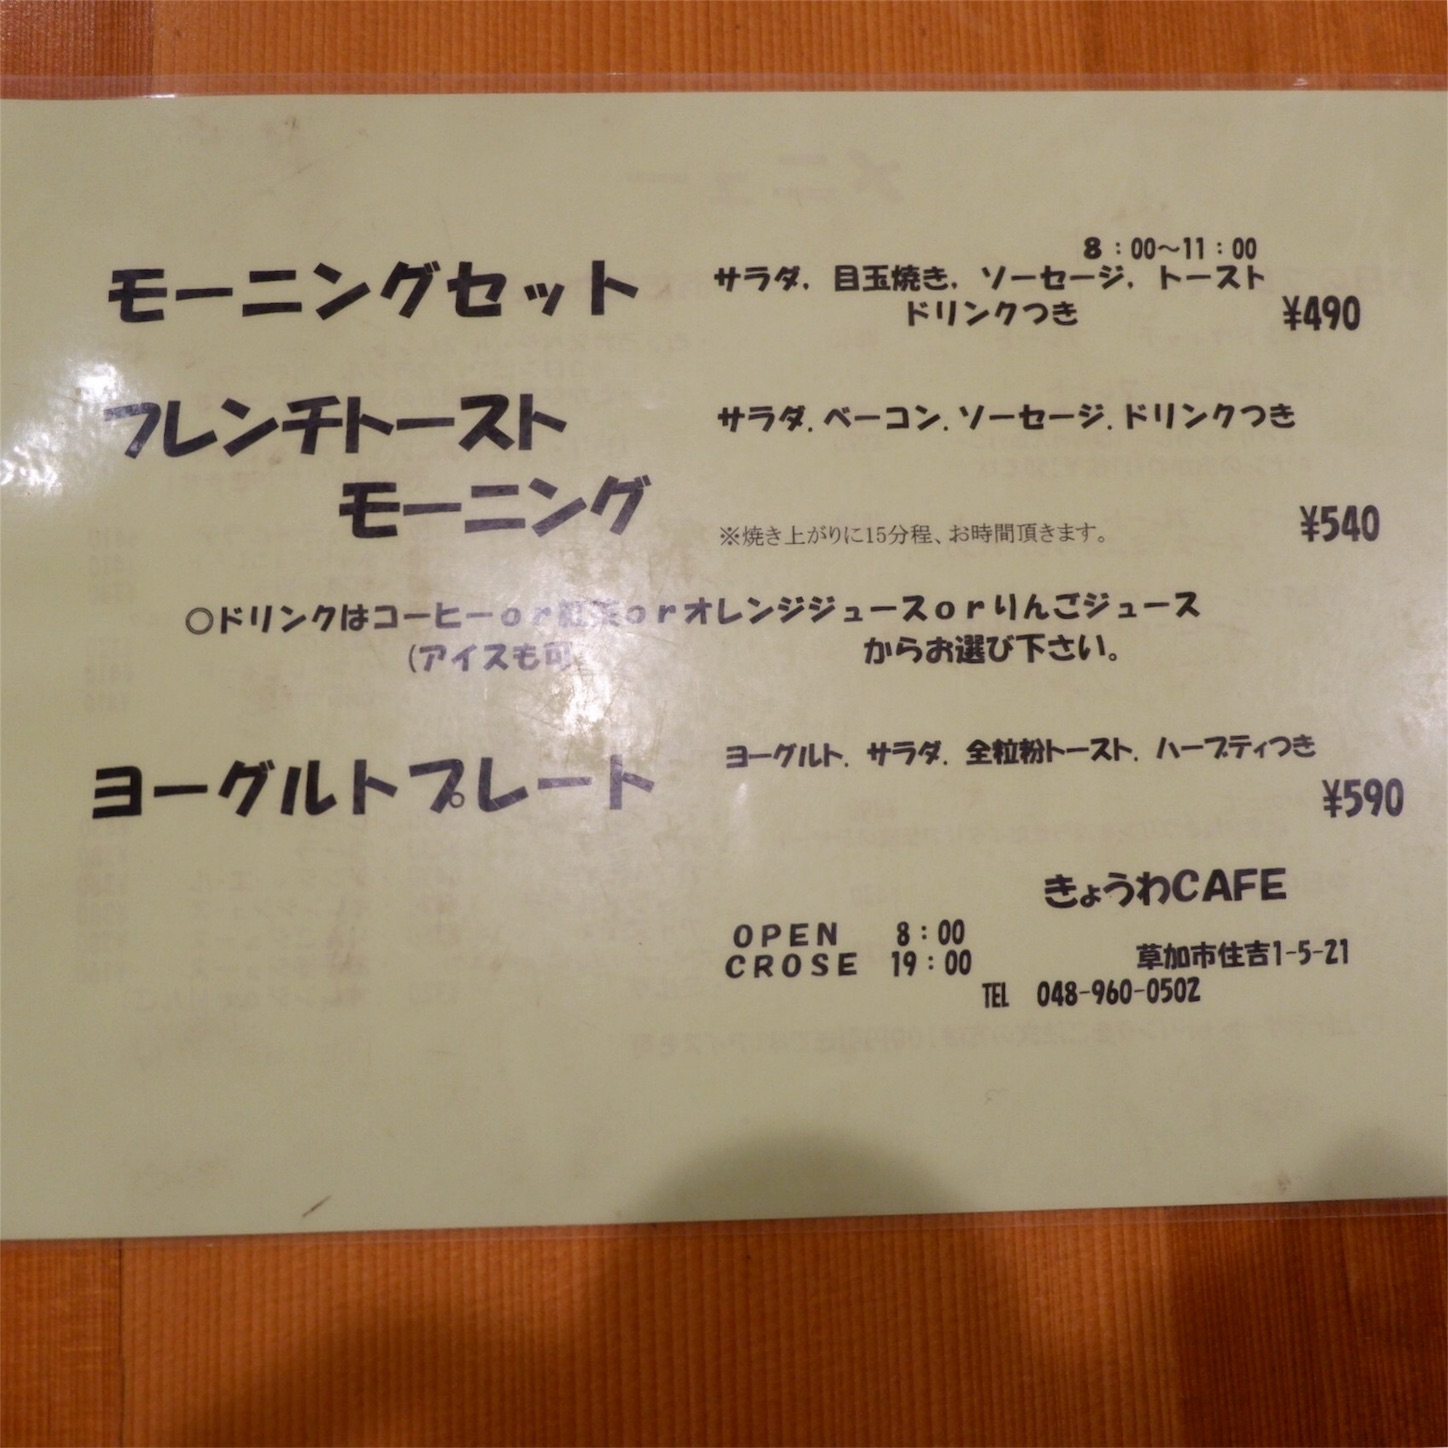 8：00～11：00
モーニングセット サラダ, 目玉焼き, ソーセージ, トースト
ドリンクつき ¥490
フレンチトースト サラダ, ベーコン, ソーセージ, ドリンクつき
モーニング ※焼き上がりに15分程、お時間頂きます。 ¥540
○ドリンクはコーヒーor紅茶orオレンジジュースorりんごジュース
(アイスも可 からお選び下さい。
ヨーグルトプレート ヨーグルト, サラダ, 全粒粉トースト, ハーブティつき
¥590
きょうわCAFE
OPEN 8：00
CROSE 19：00 草加市住吉1-5-21
TEL 048-960-0502